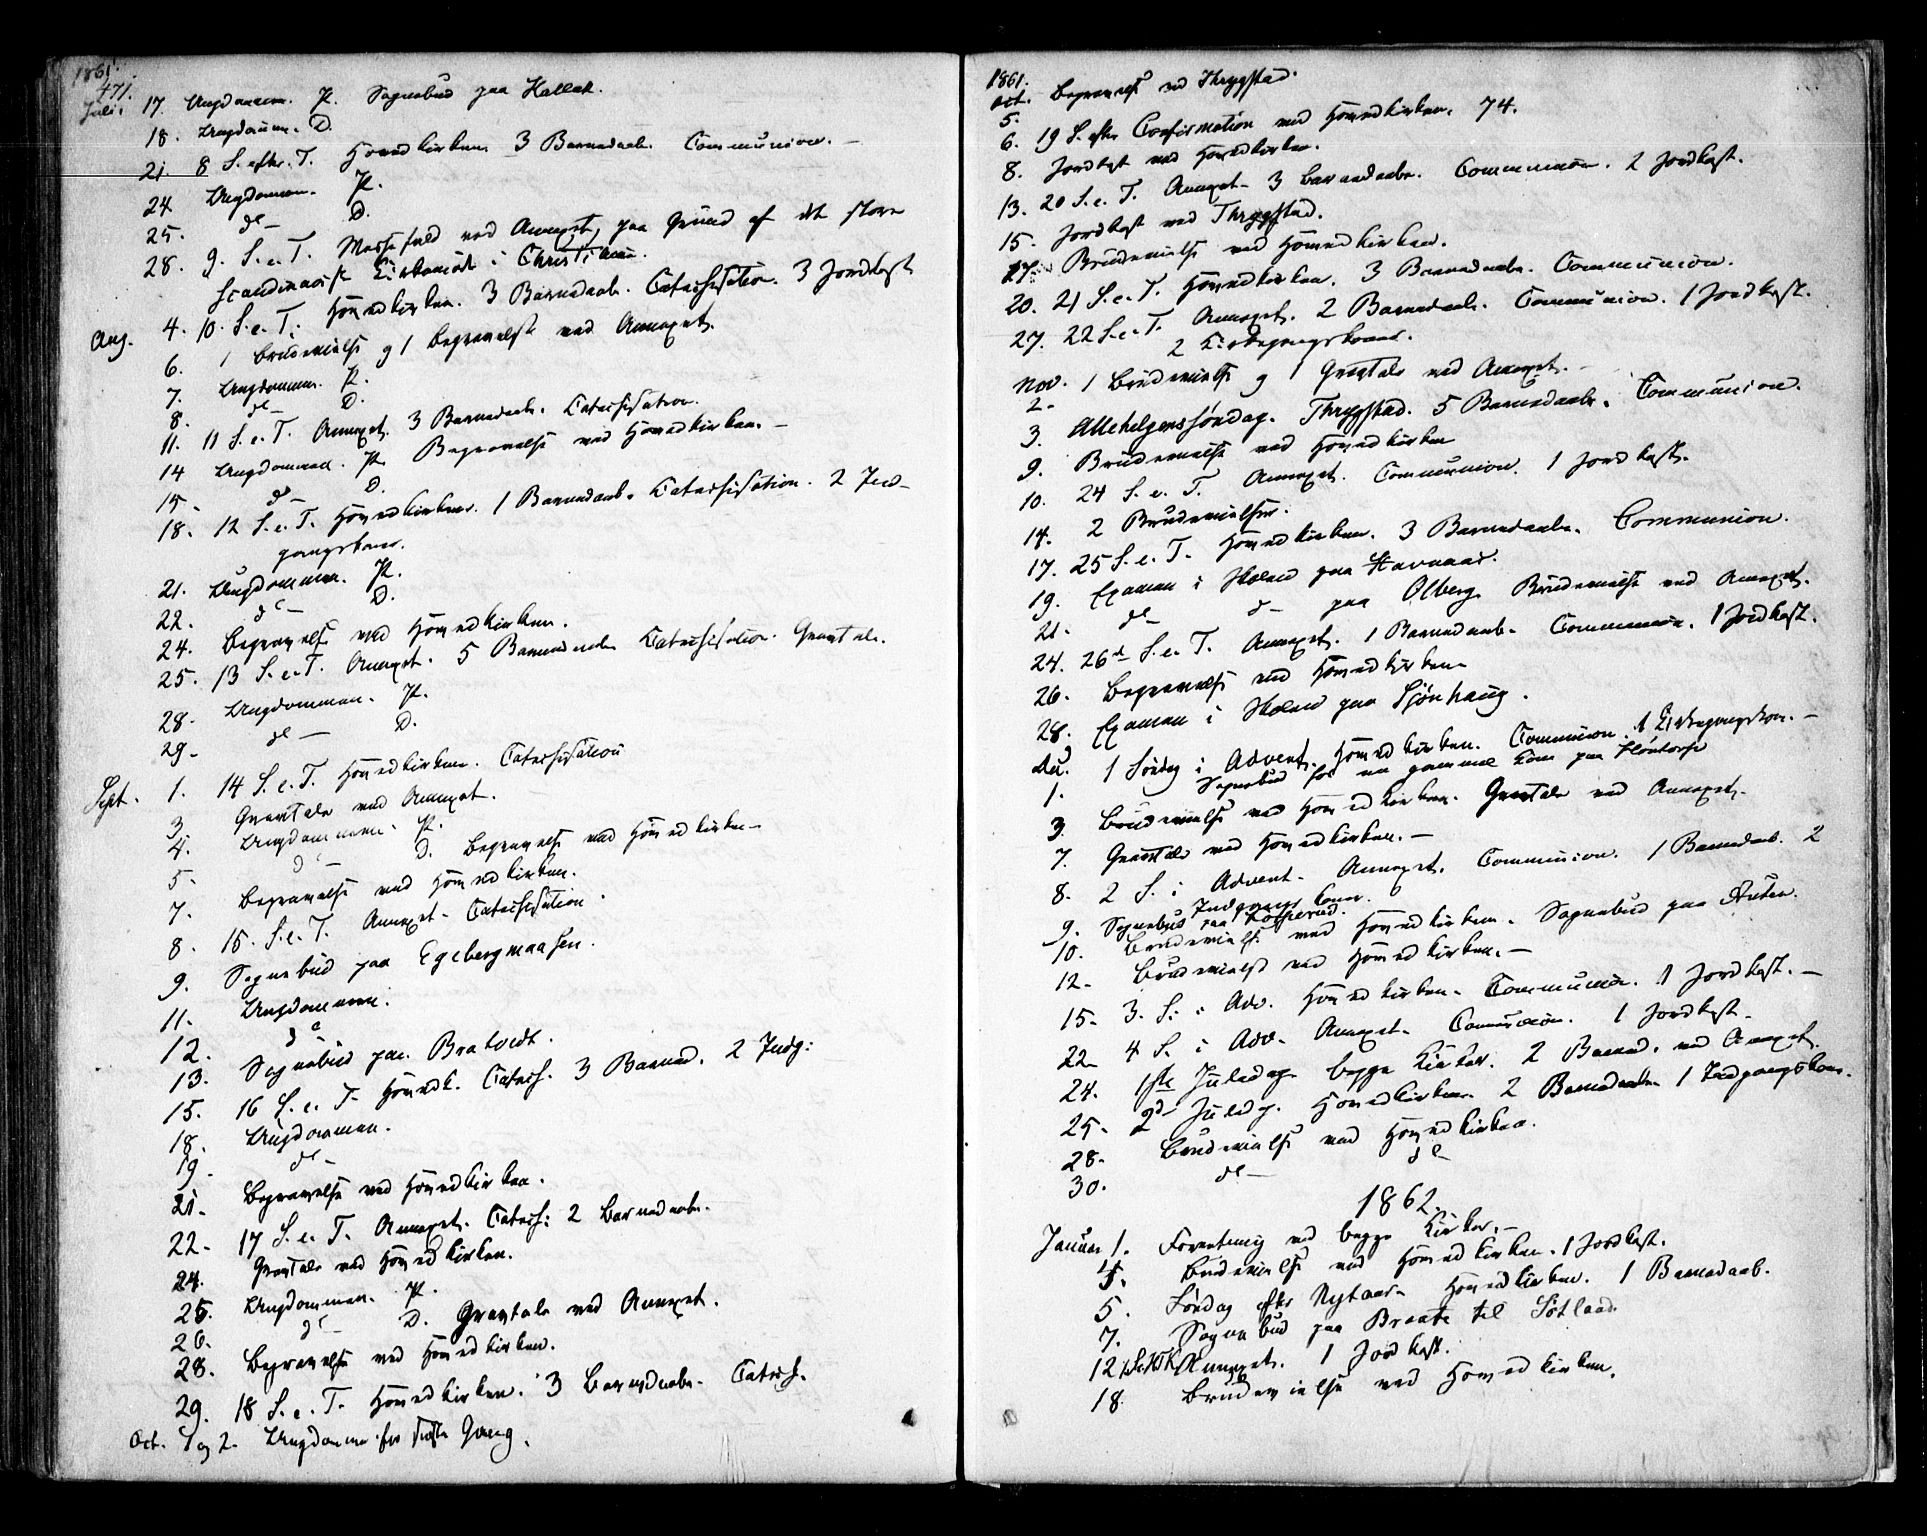 1861.
471.
Juli. 17. Ungdommen. P. Sognebud paa Hallak.
18. Ungdomm. D.
21. 8 S. efter. T. Hovedkirken 3 Barnedaab. Communion. —
24 Ungdommen. P.
25. do — D.
28. 9. S. e. T. Messefald ved Annexet, paa Grund af det store
scandinavisk Kirkemöde i Christiania.
Aug. 4. 10. S. e. T. Hovedkirken. 3 Barnedaab. Catechisation. 3 Jordkast
6. 1 Brudevielse og 1 Begravelse ved Annexet.
7. Ungdommen. P.
8. do — D.
11. 11 S. e. T. Annexet. 3 Barnedaab. Catechisation.
14 Ungdommen. P. Begravelse ved Hovedkirken. —
15. do — D.
18. 12 S. e. T. Hovedkirken. 1 Barnedaab. Catechisation. 2 Ind-
gangskoner.
21. Ungdommen. P.
22. do — D.
24. Begravelse ved Hovedkirken.
25. 13 S. e. T. Annexet. 5 Barnedaab. Catechisation. Gravtale.
28. Ungdommen. P.
29. do — D.
Sept. 1. 14 S. e. T. Hovedkirken. Catechisation
3 Gravtale ved Annexet.
4. Ungdommen. P.
5. do — D. Begravelse ved Hovedkirken —
7. Begravelse ved Hovedkirken.
8. 15. S. e. T. Annexet. Catechisation.
9. Sognebud paa Egebergmaasen.
11. Ungdommen.
12. do
13. Sognebud paa Bratvedt.
15. 16 S. e. T. Hovedk. Catech. 3 Barned. 2 Indg:
18. Ungdommen.
19. do —
21. Begravelse ved Hovedkirken.
22. 17 S. e. T. Annexet. Catech: 2 Barnedaab.
24. Gravtale ved Hovedkirken.
25. Ungdommen. P.
26. do — D. Gravtale ved Annexet.
28. Begravelse ved Hovedkirken.
29. 18 S. e. T. Hovedkirken. 3 Barnedaab. Catech.
Oct. 1 og 2. Ungdommen for sidste Gang.
1861.
Oct. Begravelse ved Thrygstad.
5.
6. 19 S. efter Confirmation ved Hovedkirken. 74.
8. Jordkast ved Hovedkirken.
13. 20 S. e. T. Annexet. 3 Barnedaab. Communion. 2 Jordkast.
15. Jordkast ved Thrygstad.
17. Brudevielse ved Hovedkirken.
20. 21 S. e. T. Hovedkirken. 3 Barnedaab. Communion.
27. 22 S. e. T. Annexet. 2 Barnedaab. Communion. 1 Jordkast.
2 Kirkegangskoner.
Nov. 1 Brudevielse og 1 Gravtale ved Annexet. —
2.
3. Allehelgenssöndag. Thrygstad. 5 Barnedaab. Communion.
9. Brudevielse ved Hovedkirken
10. 24 S. e. T. Annexet. Communion. 1 Jordkast.
14. 2 Brudevielser.
17. 25 S. e. T. Hovedkirken. 3 Barnedaab. Communion.
19. Examen i Skolen paa Havnaas.
21. do do paa Olberg. Brudevielse ved Annexet.
24. 26de S. e. T. Annexet. 1 Barnedaab. Communion. 1 Jordkast.
26. Begravelse ved Hovedkirken
28. Examen i Skolen paa Sjönhaug.
Dec. 1 Söndag i Advent. Hovedkirken. Communion. 1 Kirkegangskon. —
1. Sognebud for en gammel Kone paa
3. Brudevielse ved Hovedkirken. Gravtale ved Annexet.
7. Gravtale ved Hovedkirken. —
8. 2 S. i Advent. Annexet. Communion. 1 Barnedaab. 2
Indgangskoner.
9. Sognebud paa
10. Brudevielse ved Hovedkirken. Sognebud paa
12. Brudevielse ved Hovedkirken. —
15. 3. S. i Adv. Hovedkirken. Communion. 1 Jordkast. —
22 4 S. i Adv. Annexet. Communion. 1 Jordkast.
24. 1ste Juledag begge Kirker. 2 Barned. ved Annexet.
25. 2den Juledg. Hovedkirken. 2 Barnedaab 1 Indgangskone.
28. Brudevielse ved Hovedkirken.
30. do — do —
1862.
Januar 1. Forretning ved begge Kirker. —
Brudevielse ved Hovedkirken. 1 Jordkast.
5. Söndag efter Nytaar. Hovedkirken. 1 Barnedaab.
7. Sognebud paa Braate til Sötland.
12. Annexet. 1 Jordkast.
18. Brudevielse ved Hovedkirken.